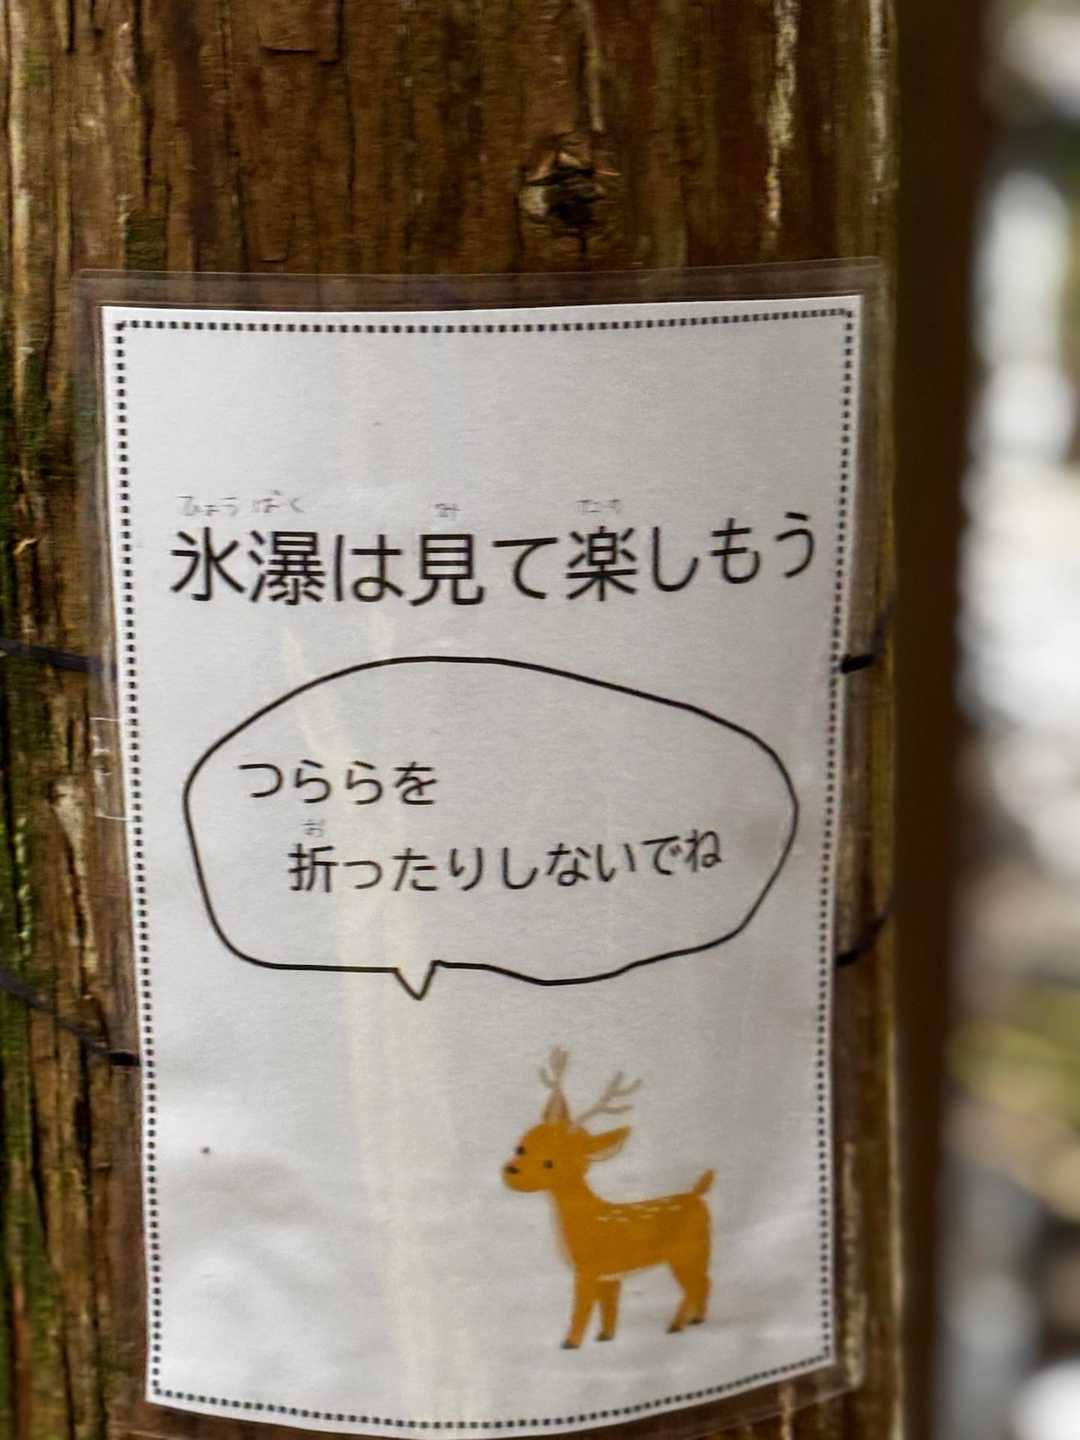 ひょうばく み たの
氷瀑は見て楽しもう
つららを
お
折ったりしないでね